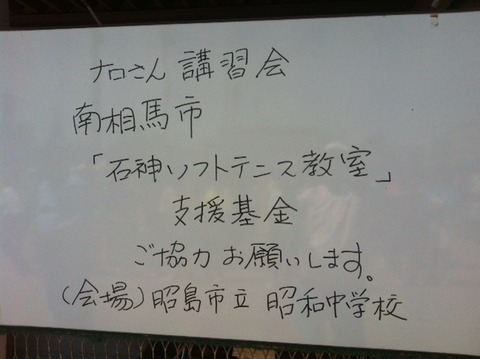 ナロさん 講習会
南相馬市
「石神ソフトテニス教室」
支援基金
ご協力 お願いします。
(会場) 昭島市立 昭和中学校